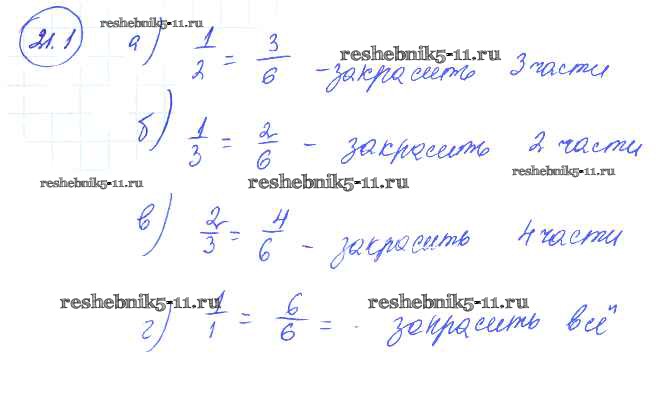 reshebnik5-11.ru
21.1 а) 1/2 = 3/6 - закрасить 3 части
reshebnik5-11.ru
б) 1/3 = 2/6 - закрасить 2 части
reshebnik5-11.ru reshebnik5-11.ru reshebnik5-11.ru
в) 2/3 = 4/6 - закрасить 4 части
reshebnik5-11.ru reshebnik5-11.ru
г) 1/1 = 6/6 = . закрасить всё